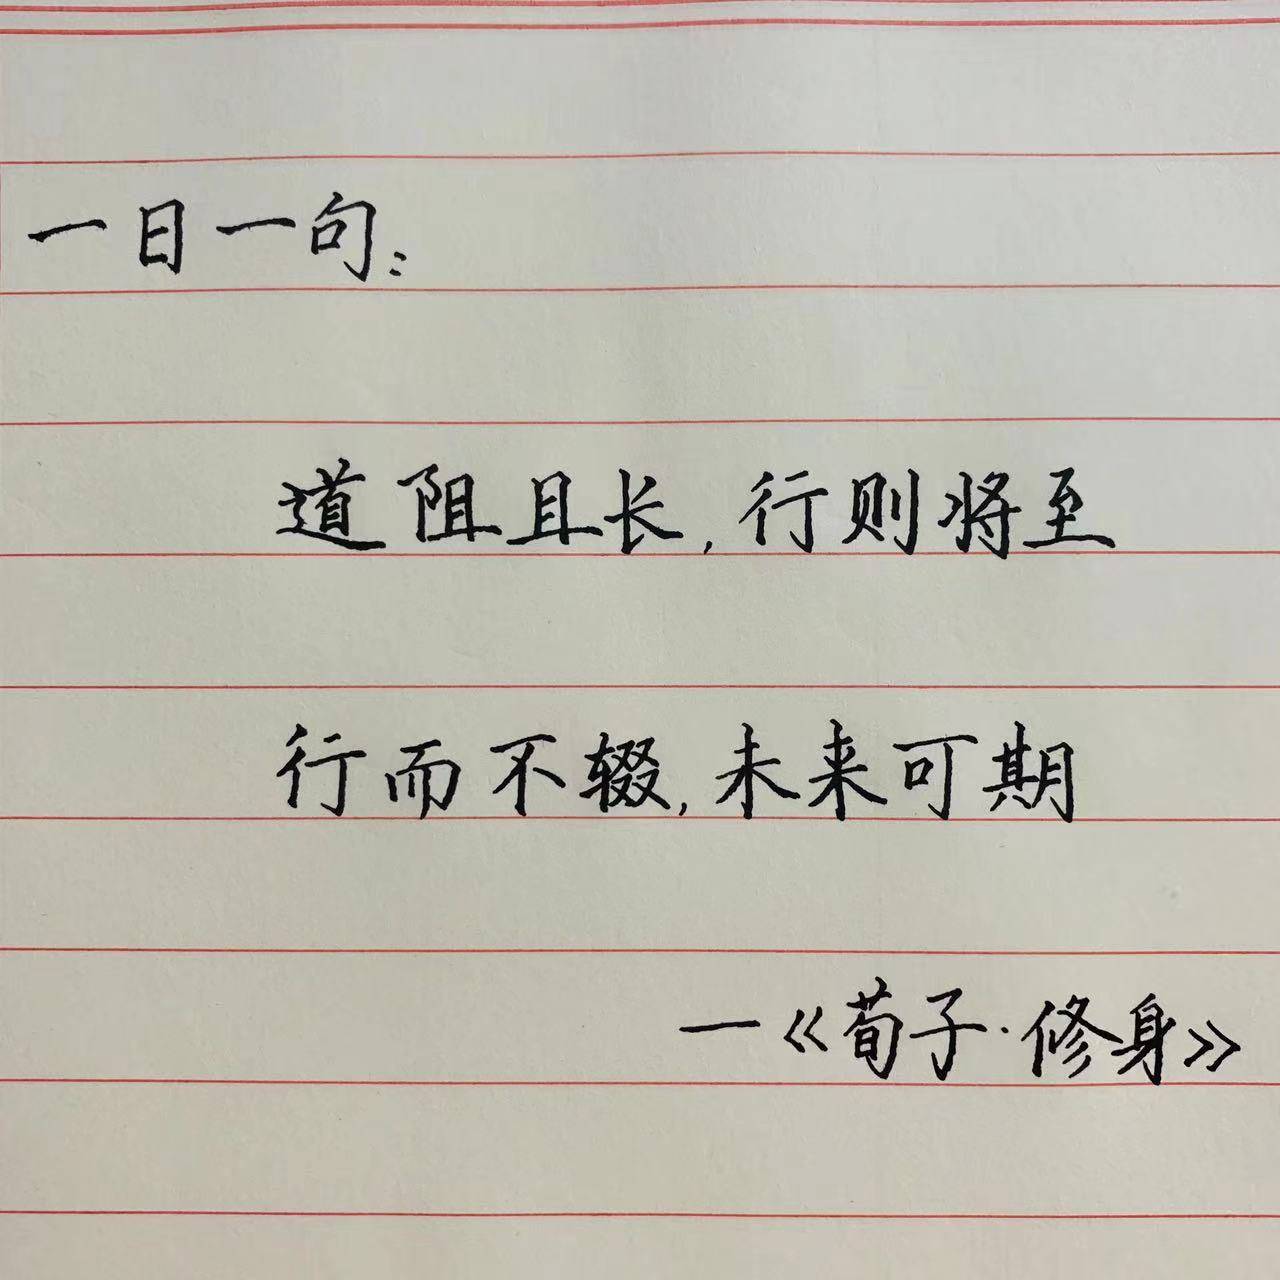 一日一句：
道阻且长,行则将至
行而不辍,未来可期
—《荀子·修身》